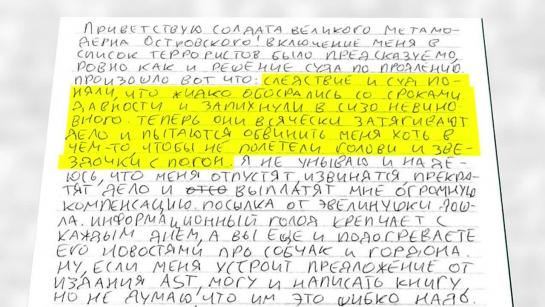 ПРИВЕТСТВУЮ СОЛДАТА ВЕЛИКОГО МЕТАМО-
ДЕРНА ОСТРОВСКОГО! ВКЛЮЧЕНИЕ МЕНЯ В
СПИСОК ТЕРРОРИСТОВ БЫЛО ПРЕДСКАЗУЕМО,
РОВНО КАК И РЕШЕНИЕ СУДА ПО ПРОДЛЕНИЮ
ПРОИЗОШЛО ВОТ ЧТО: СЛЕДСТВИЕ И СУД ПО-
НЯЛИ, ЧТО ЖИДКО ОБОСРАЛИСЬ СО СРОКАМИ
ДАВНОСТИ И ЗАПИХНУЛИ В СИЗО НЕВИНО-
ВНОГО. ТЕПЕРЬ ОНИ ВСЯЧЕСКИ ЗАТЯГИВАЮТ
ДЕЛО И ПЫТАЮТСЯ ОБВИНИТЬ МЕНЯ ХОТЬ В
ЧЕМ-ТО, ЧТОБЫ НЕ ПОЛЕТЕЛИ ГОЛОВЫ И ЗВЕ-
ЗДОЧКИ С ПОГОН. Я НЕ УНЫВАЮ И НАДЕ-
ЮСЬ, ЧТО МЕНЯ ОТПУСТЯТ, ИЗВИНЯТСЯ, ПРЕКРА-
ТЯТ ДЕЛО И ВЫПЛАТЯТ МНЕ ОГРОМНУЮ
КОМПЕНСАЦИЮ. ПОСЫЛКА ОТ ЭВЕЛИНУШКИ ДОШ-
ЛА. ИНФОРМАЦИОННЫЙ ГОЛОД КРЕПЧАЕТ С
КАЖДЫМ ДНЕМ, А ВЫ ЕЩЕ И ПОДОГРЕВАЕТЕ
ЕГО НОВОСТЯМИ ПРО СОБЧАК И ГОРДОНА.
НУ, ЕСЛИ МЕНЯ УСТРОИТ ПРЕДЛОЖЕНИЕ ОТ
ИЗДАНИЯ AST, МОГУ И НАПИСАТЬ КНИГУ
НО НЕ ДУМАЮ, ЧТО ИМ ЭТО ШИБКО НАДЬ.